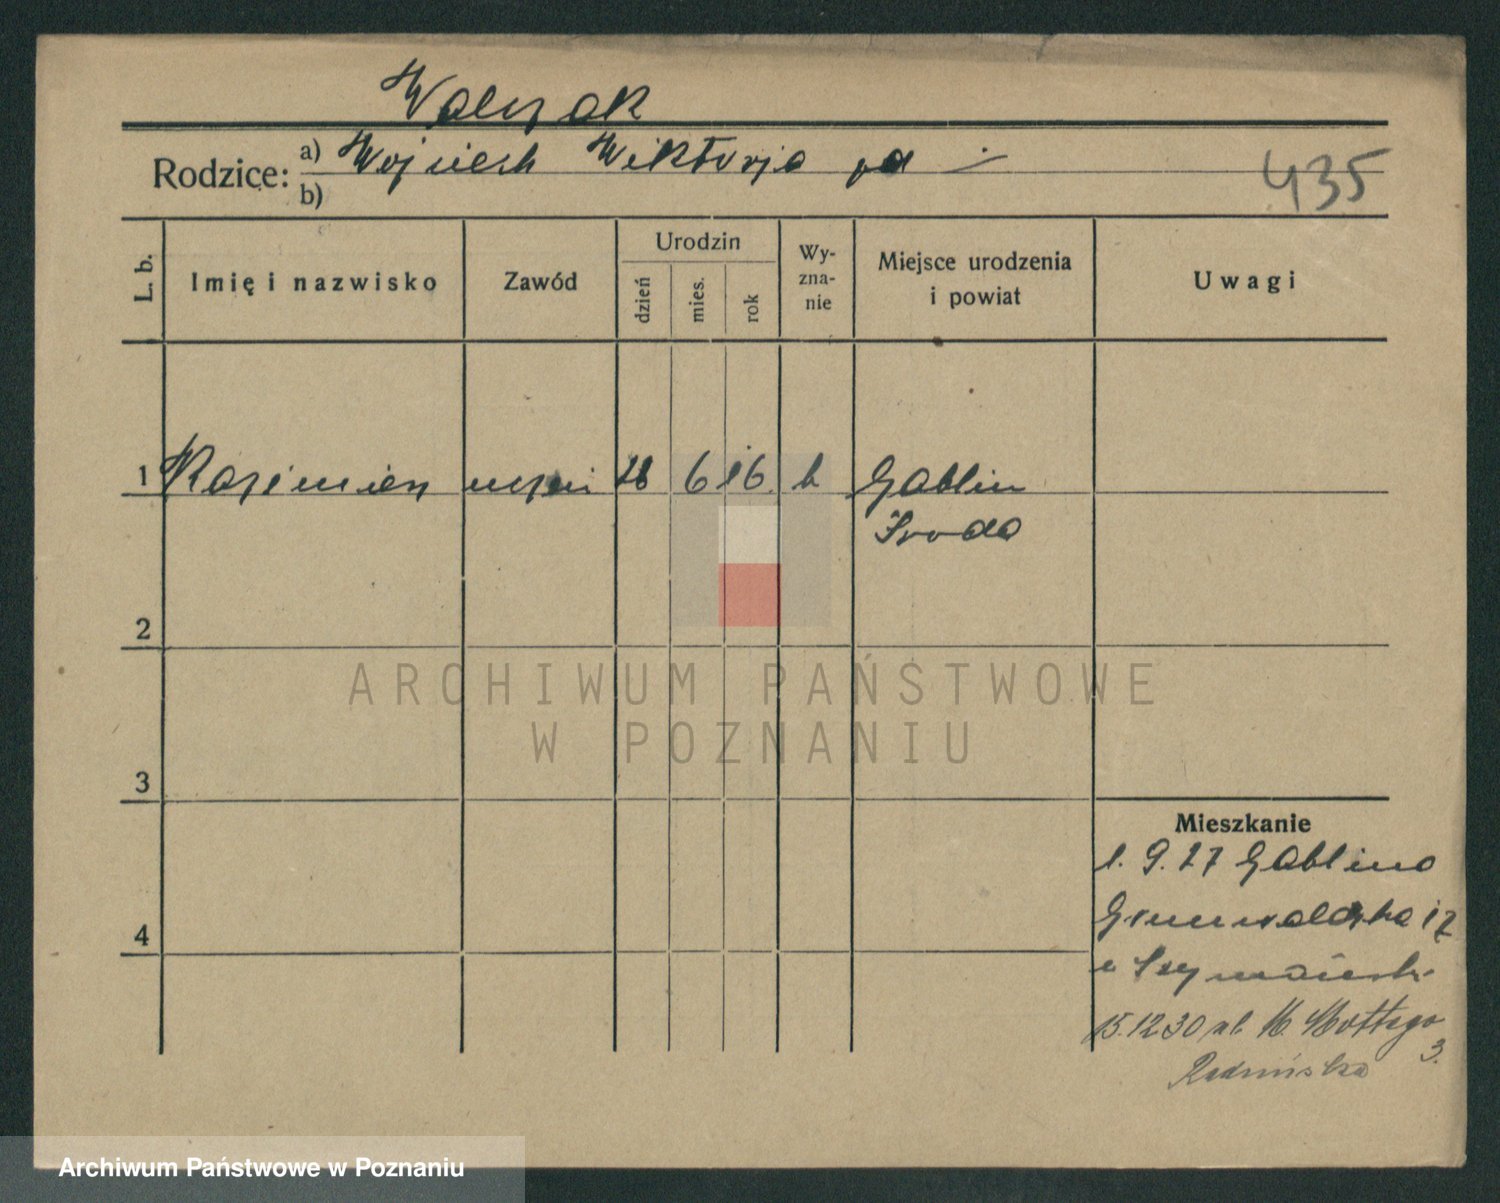 Walczak
Rodzice: a) Wojciech Wiktorja
b)
435
L. b.
Imię i nazwisko
Zawód
Urodzin
dzień
mies.
rok
Wy-
zna-
nie
Miejsce urodzenia
i powiat
Uwagi
1 Kazimierz uczeń 28 6 16 k Gablin
Sroda
2
ARCHIWUM PAŃSTWOWE
W POZNANIU
3
Mieszkanie
1. 9. 27 Gablina
4
Grunwaldzka 17
15.12.30 ul. M. Mottego
3.
Radzińska
Archiwum Państwowe w Poznaniu